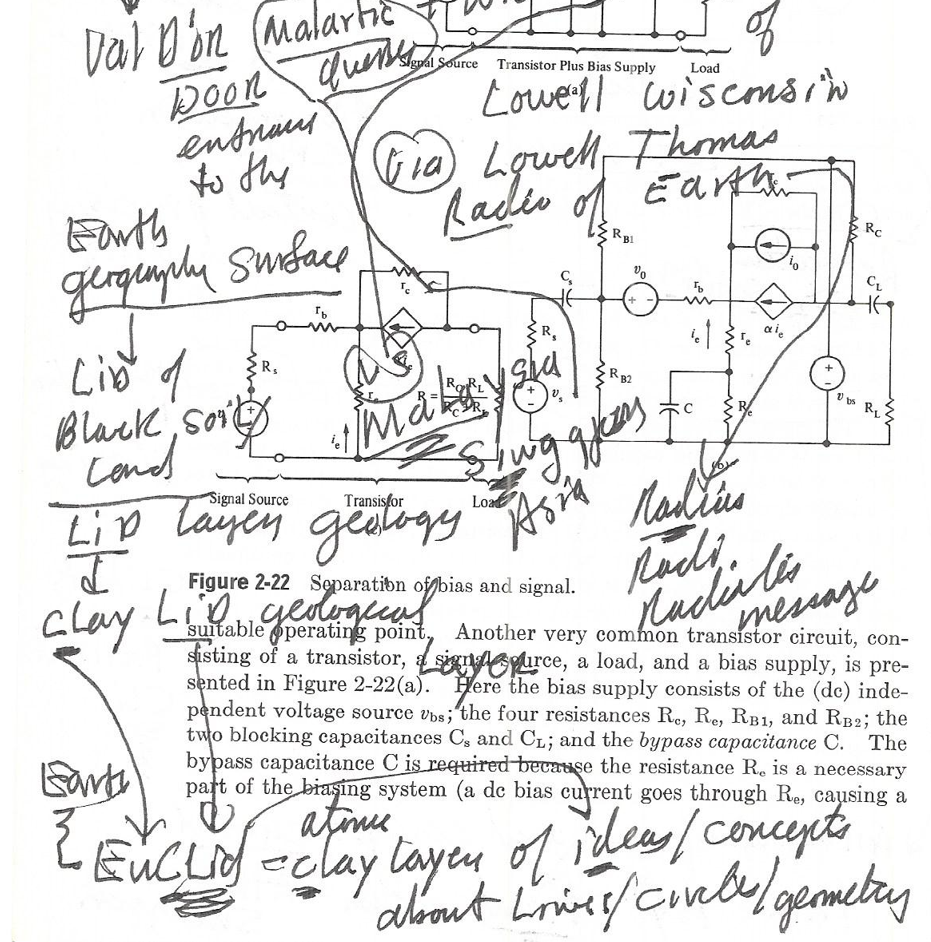 Val D'or
Door
entrance
to the
Malartic
quebec
of
Signal Source Transistor Plus Bias Supply Load
(a)
Lowell Wisconsin
via Lowell Thomas
Radio of Earth
Earth
geography surface
Lid of
Black soil
land
Lid layer geology
R_B1
R_C
v_0
i_0
r_c
r_b
C_s
C_L
α i_e
i_e
r_e
R_s
R_B2
v_s
C
R_e
v_bs
R_L
r_b
r_c
R_s
i_e
VS
Malaysia
Asia
Signal Source Transistor Load
(b)
Radius
Radi
message
Figure 2-22 Separation of bias and signal.
clay Lid geological
Layer
suitable operating point. Another very common transistor circuit, con-
sisting of a transistor, a signal source, a load, and a bias supply, is pre-
sented in Figure 2-22(a). Here the bias supply consists of the (dc) inde-
pendent voltage source v_bs; the four resistances R_c, R_e, R_B1, and R_B2; the
two blocking capacitances C_s and C_L; and the bypass capacitance C. The
bypass capacitance C is required because the resistance R_e is a necessary
part of the biasing system (a dc bias current goes through R_e, causing a
Earth
atomic
EuCLid = clay layer of ideas/concepts
about Lines/circles/geometry